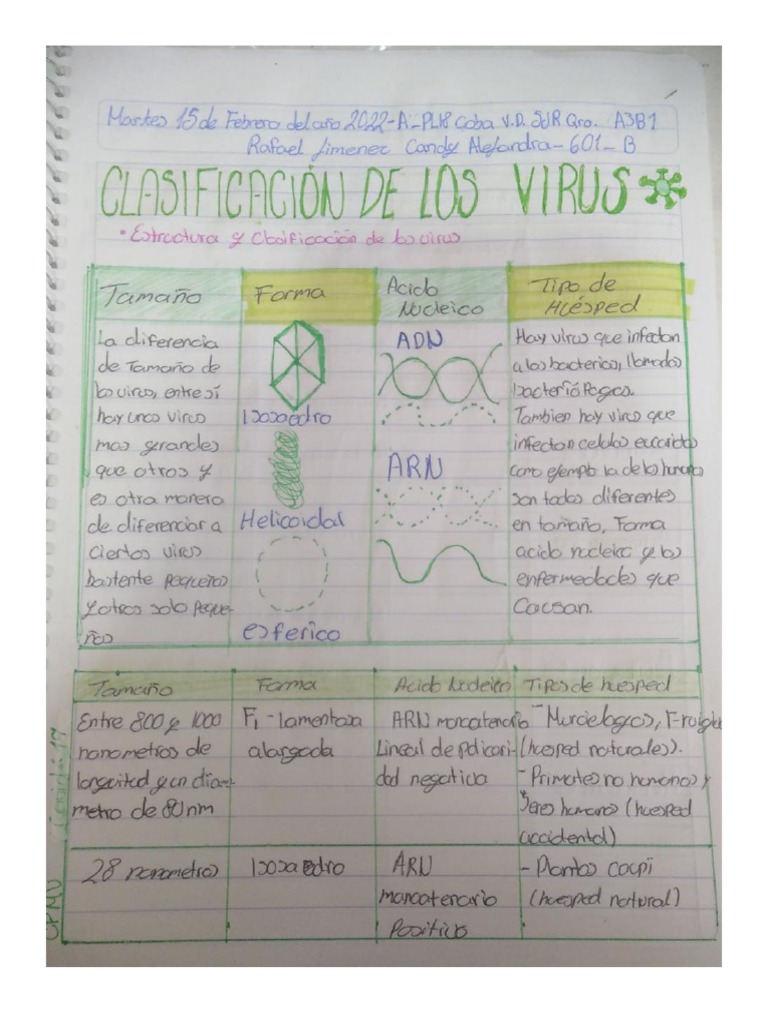 Martes 15 de Febrero del año 2022-A_PL18 Coba V.D. SUR Qro. A3B1
Rafael Jimenez Candy Alejandra-601-B
CLASIFICACIÓN DE LOS VIRUS
• Estructura y Clasificación de los virus
Tamaño
La diferencia
de Tamaño de
los virus, entre sí
hay unos virus
mas grandes
que otros y
es otra manera
de diferenciar a
Ciertos virus
bastente pequeños
y otros solo peque-
ños
Forma
Icosaedro
Helicoidal
esferico
Acido
Nucleico
ADN
ARN
Tipo de
Huésped
Hay virus que infectan
a las bacterias, llamados
bacteriófagos.
Tambien hay virus que
infectan celulas
como ejemplo la de los humanos
son todos diferentes
en tamaño, Forma
acido nucleico y las
enfermedades que
Causan.
Tamaño Forma Acido Nucleico Tipos de huesped
Entre 800 y 1000
nanometros de
longuitud y un diam-
metro de 80 nm
Fi-lamentosa
alargada
ARN moncatenario
Lineal de policari-
dad negativa
- Murcielagos, Frugi
(huesped naturales).
- Primates no humanos y
Seres humanos (huesped
accidental)
28 nanometros
Icosaedro
ARN
moncatenario
Positivo
- Plantas caupi
(huesped natural)
CPMV